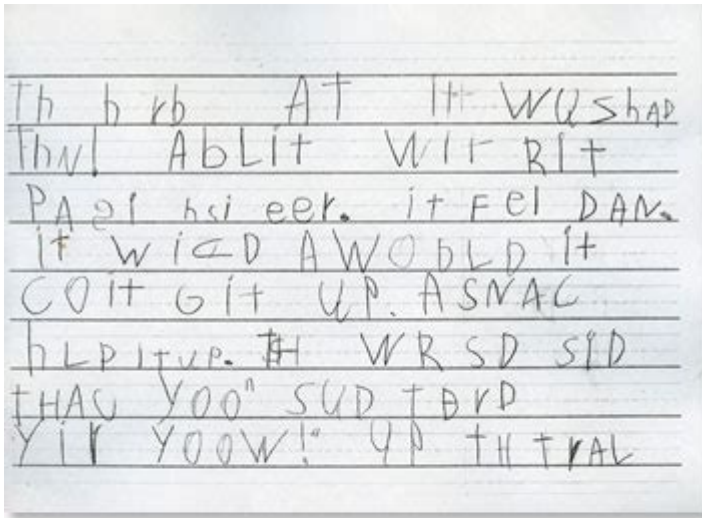 Th h rb AT It WUShAD
ThNl AbLit Wir Rit
PA hsi eer. it Fel DAN.
it WiCD AWObLD it
COit Git UP. ASNAC
hLPitUP. TH WRSD SiD
tHAC YOO" SUD tBrD
Yir YOOW!" UP tH trAL